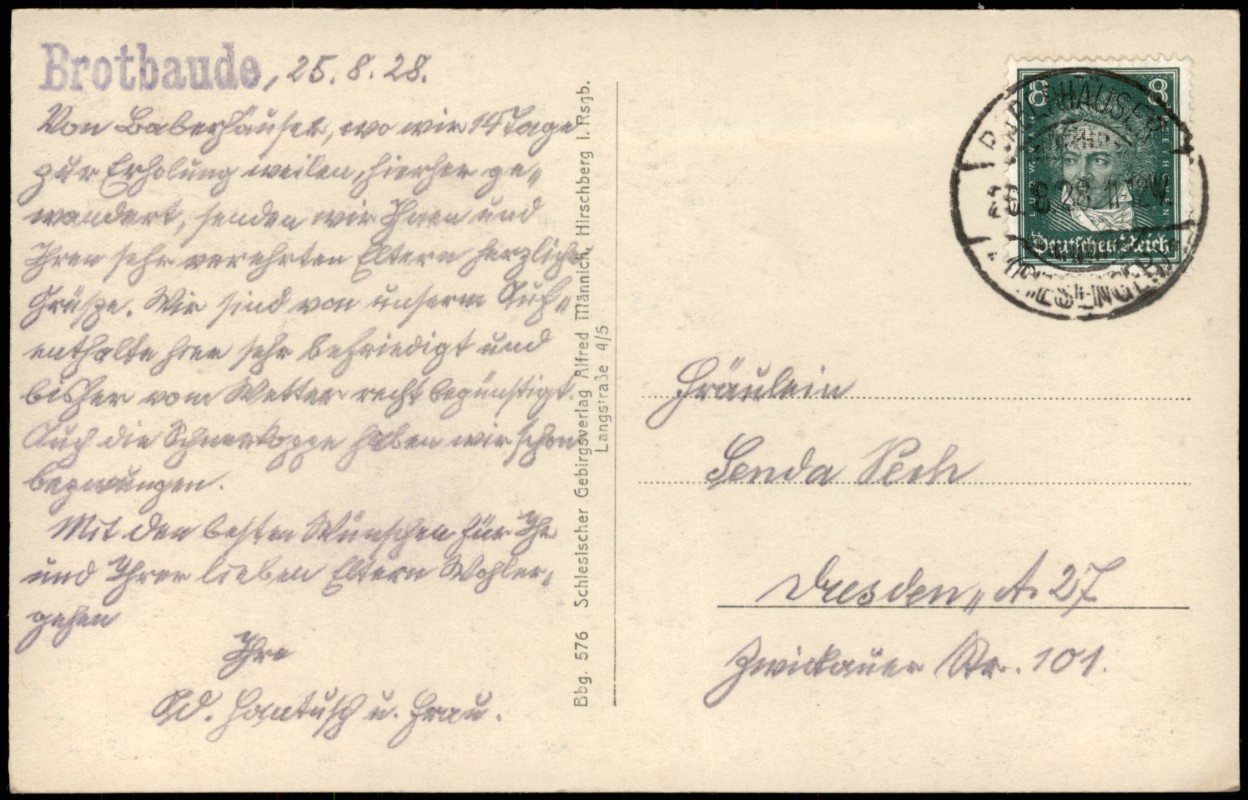 Brotbaude, 25.8.28.
Von Baberhäuser, wo wir 14 Tage
zur Erholung weilen, hierher ge„
wandert, senden wir Ihnen und
Ihren sehr verehrten Eltern herzliche
Grüsze. Wir sind von unserm Auf„
enthalte hier sehr befriedigt und
bisher vom Wetter recht begünstigt.
Auch die Schneekoppe haben wir schon
bezwungen.
Mit den besten Wünschen für Ihr
und Ihrer lieben Eltern Wohler„
gehen
Ihre
u. Frau.
Bbg. 576 Schlesischer Gebirgsverlag Alfred Männich, Hirschberg i. Rsgb.
Langstraße 4/5
8 8
LUDW. V. BEETHOVEN
Deutsches Reich
28. 11-12V.
Fräulein
Senda Pech
Dresden„ A. 27
Zwickauer Str. 101.